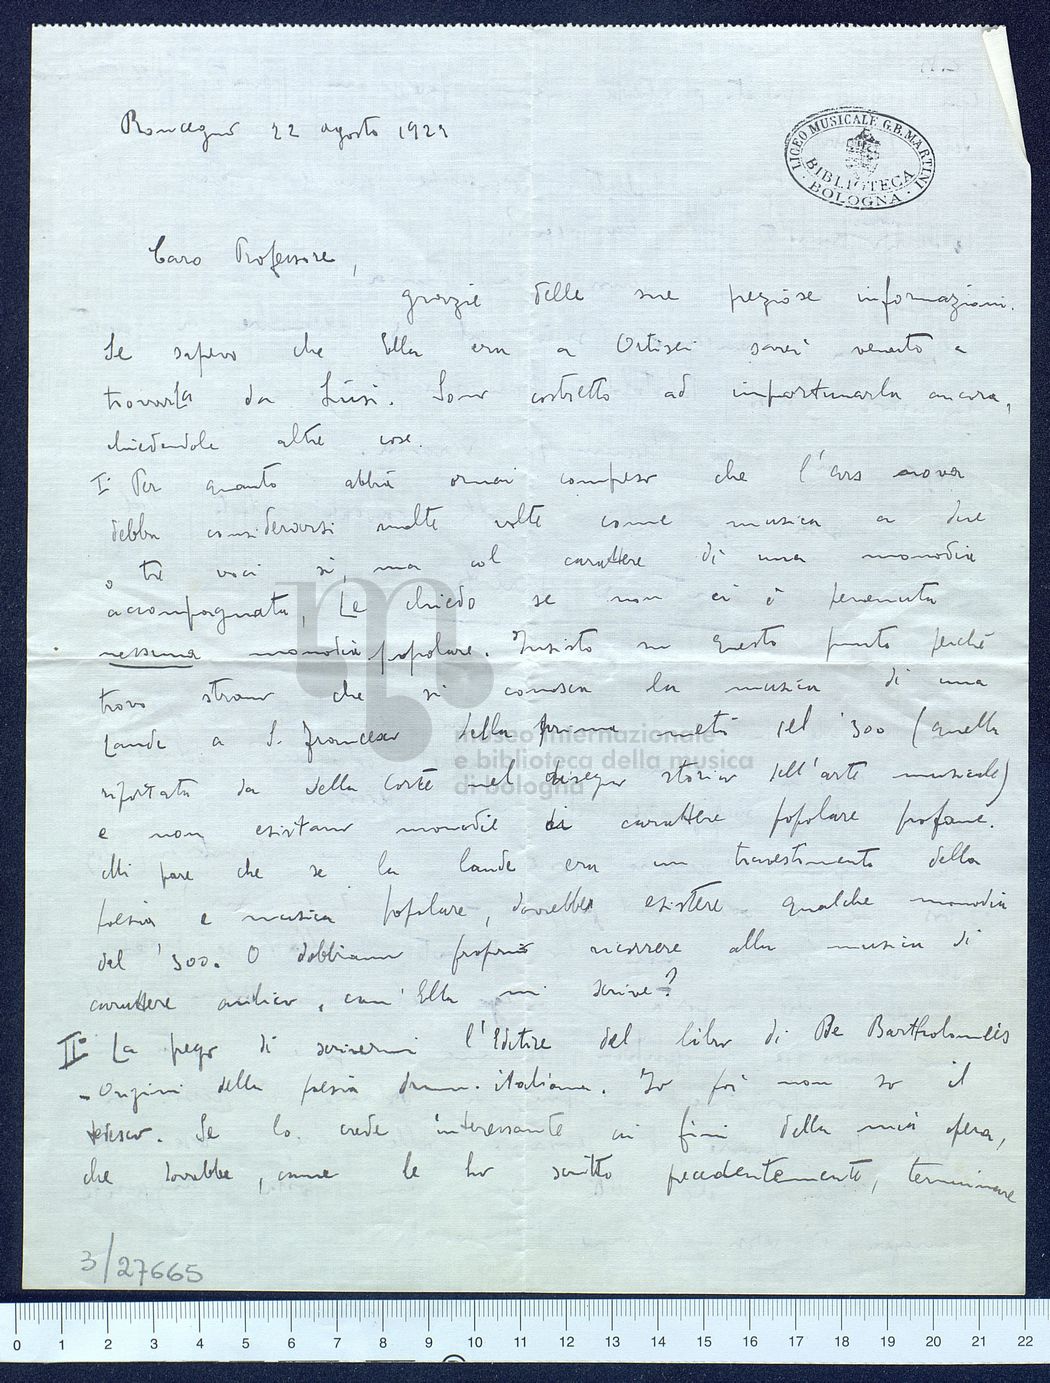 Roncegno 22 agosto 1922
LICEO MUSICALE G.B. MARTINI
BIBLIOTECA
BOLOGNA
Caro Professore,
grazie delle sue preziose informazioni.
Se sapevo che Ella era a Ortisei sarei venuto a
trovarla da Siusi. Sono costretto ad importunarla ancora,
chiedendole altre cose.
I° Per quanto abbia ormai compreso che l'ars nova
debba considerarsi molte volte come musica a due
o tre voci sì, ma col carattere di una monodia
accompagnata, Le chiedo se non ci è pervenuta
nessuna monodia popolare. Insisto su questo punto perché
trovo strano che si conosca la musica di una
Laude a S. Francesco della prima metà del '300 (quella
riportata da Della Corte nel disegno storico dell'arte musicale)
e non esistano monodie di carattere popolare profane.
Mi pare che se la laude era un travestimento della
poesia e musica popolare, dovrebbe esistere qualche monodia
del '300. O dobbiamo proprio ricorrere alla musica di
carattere aulico, com'Ella mi scrive?
II° La prego di scrivermi l'Editore del libro di De Bartholomeis
- Origini della poesia dramm. italiana. Io poi non so il
tedesco. Se lo crede interessante ai fini della mia opera,
che dovrebbe, come le ho scritto precedentemente, terminare
3/27665
museo internazionale
e biblioteca della musica
di bologna
0 1 2 3 4 5 6 7 8 9 10 11 12 13 14 15 16 17 18 19 20 21 22